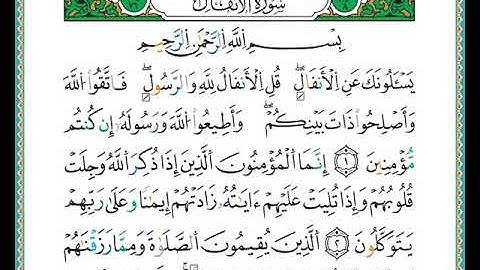 سُورَةُ الأَنْفَالِ
بِسْمِ اللَّهِ الرَّحْمَٰنِ الرَّحِيمِ
يَسْـَٔلُونَكَ عَنِ الْأَنفَالِۖ قُلِ الْأَنفَالُ لِلَّهِ وَالرَّسُولِۖ فَاتَّقُوا۟ اللَّهَ
وَأَصْلِحُوا۟ ذَاتَ بَيْنِكُمْۖ وَأَطِيعُوا۟ اللَّهَ وَرَسُولَهُۥٓ إِن كُنتُم
مُّؤْمِنِينَ ١ إِنَّمَا الْمُؤْمِنُونَ الَّذِينَ إِذَا ذُكِرَ اللَّهُ وَجِلَتْ
قُلُوبُهُمْ وَإِذَا تُلِيَتْ عَلَيْهِمْ ءَايَٰتُهُۥ زَادَتْهُمْ إِيمَٰنًا وَعَلَىٰ رَبِّهِمْ
يَتَوَكَّلُونَ ٢ الَّذِينَ يُقِيمُونَ الصَّلَوٰةَ وَمِمَّا رَزَقْنَٰهُمْ